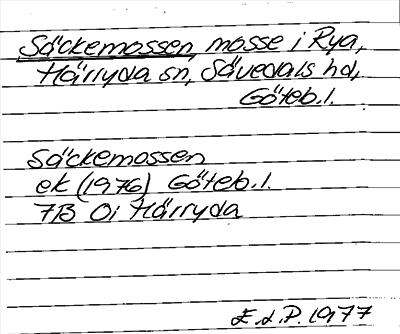 Säckemossen, mosse i Rya,
Härryda sn, Sävedals hd,
Göteb.l.
Säckemossen
ek (1976) Göteb.l.
7B 0i Härryda
E.d.P. 1977